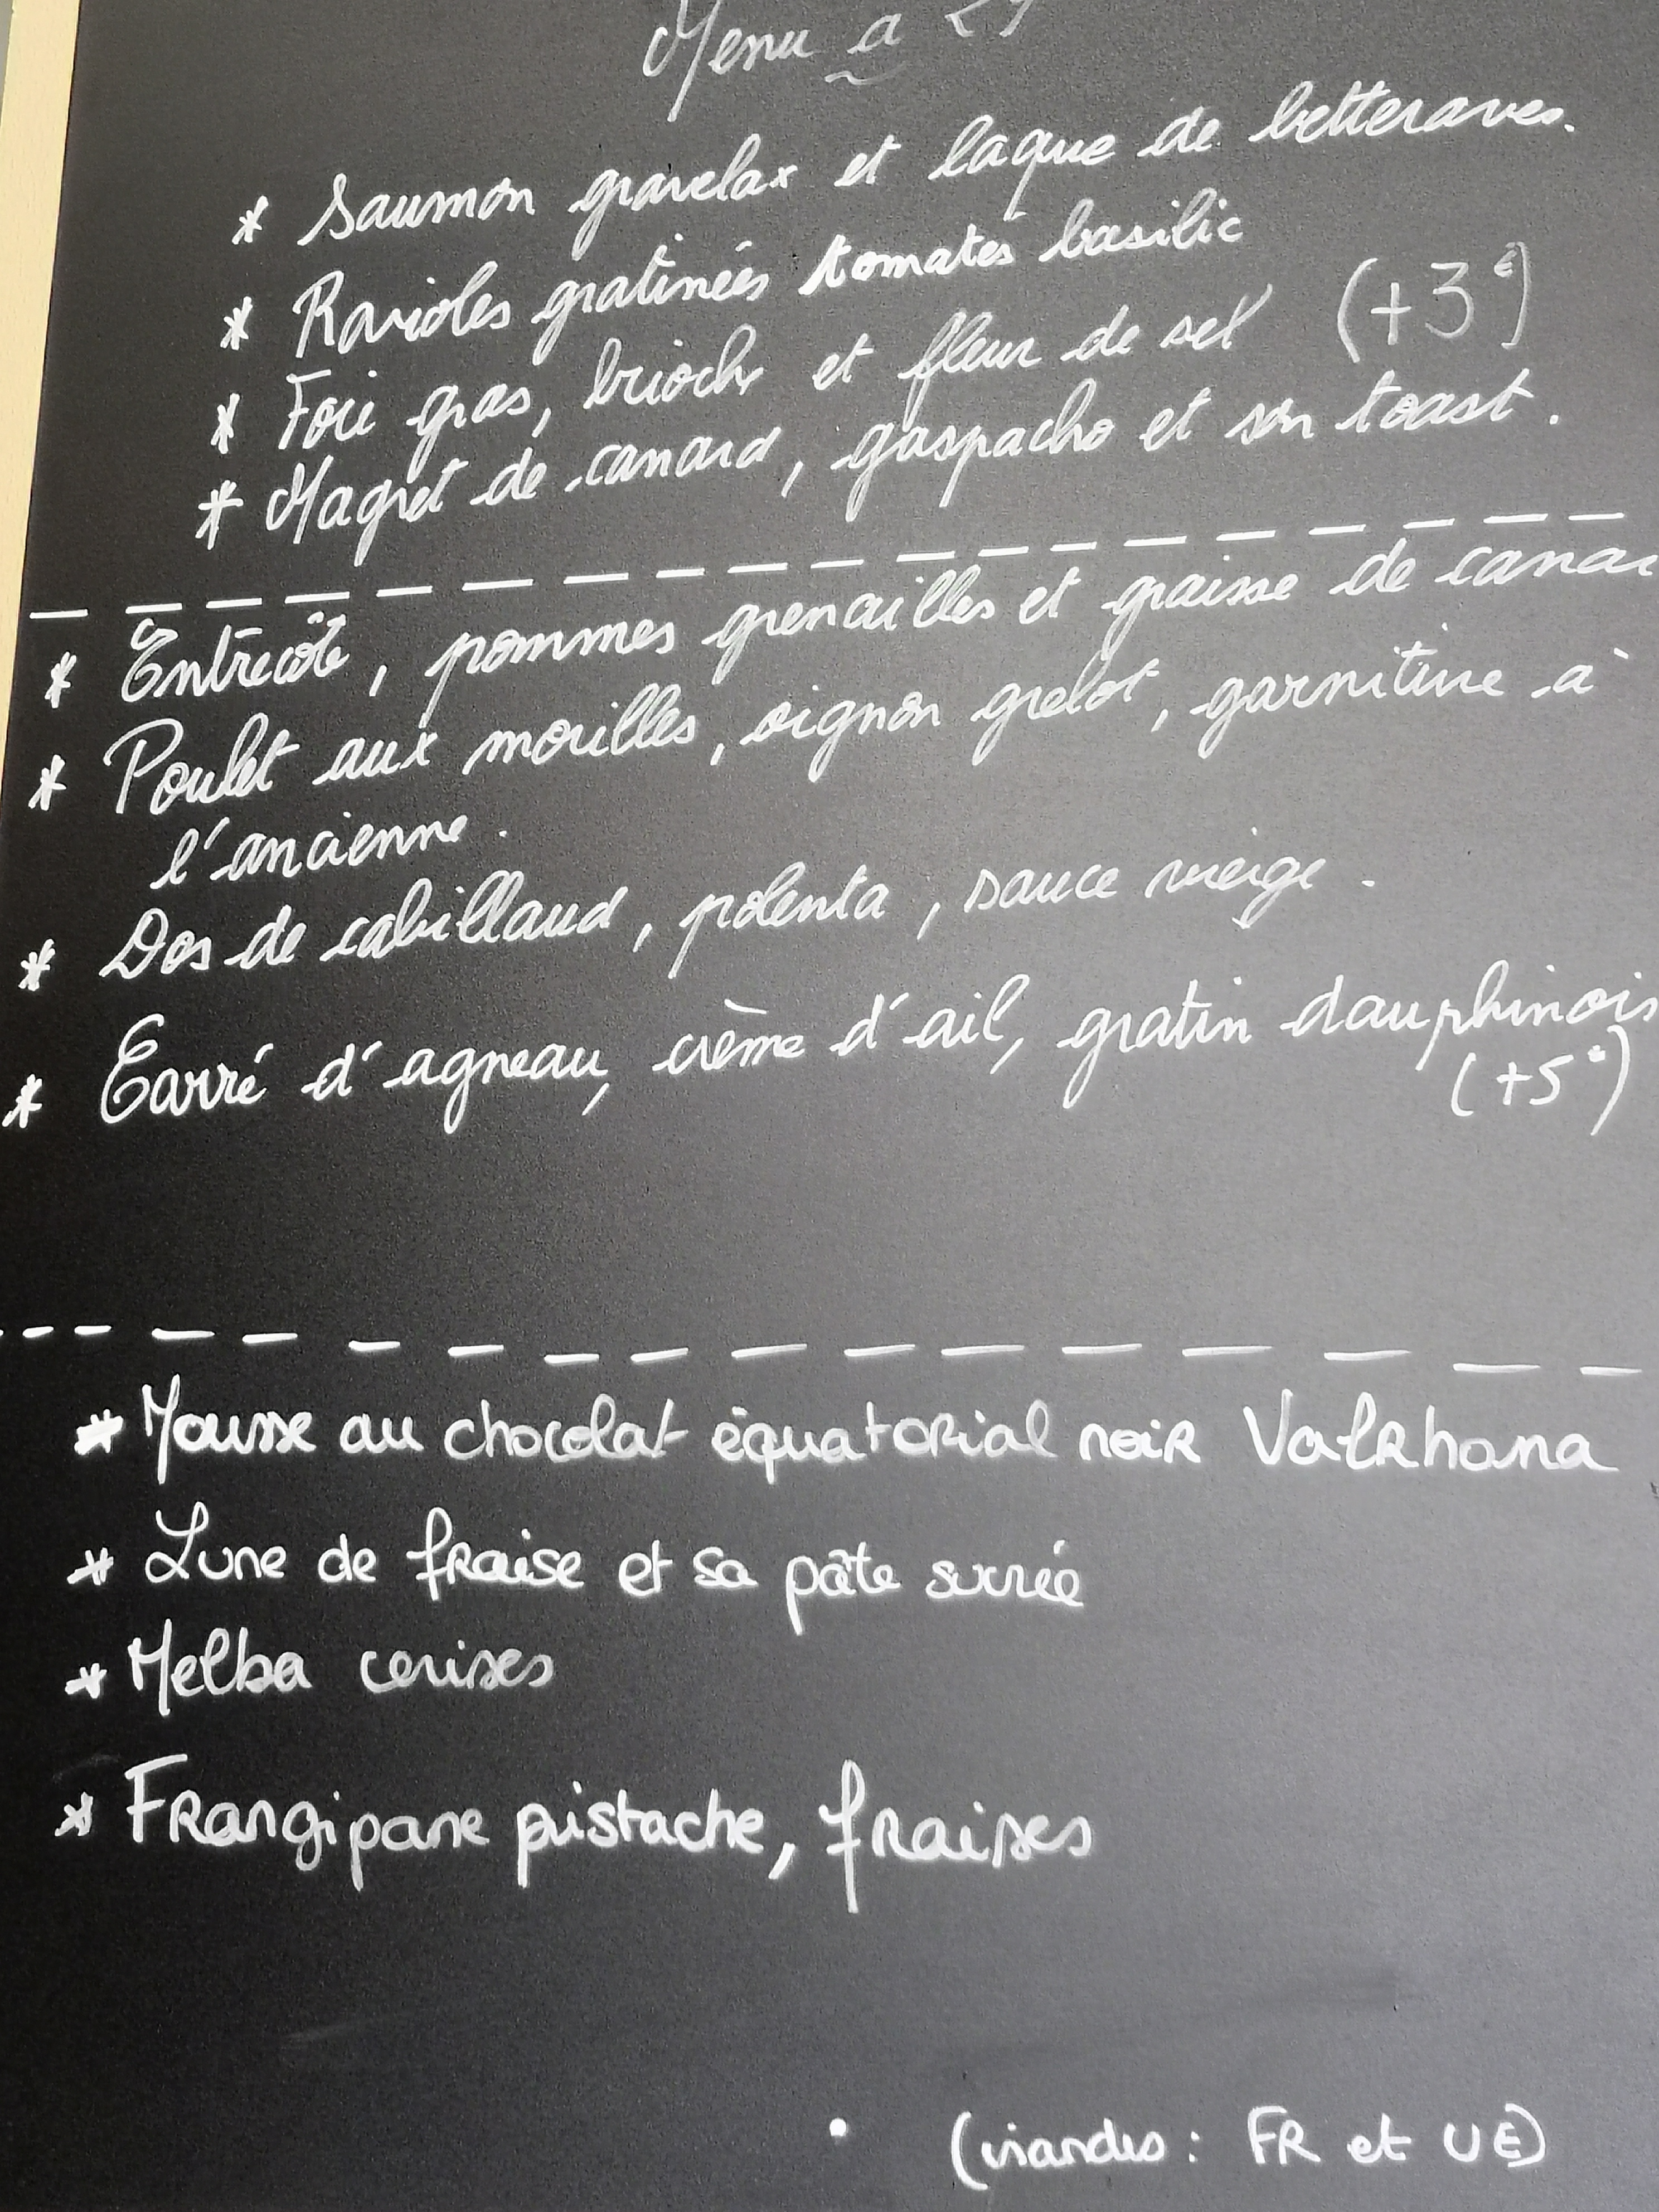 Menu à
* Saumon gravelax et laque de betteraves.
* Ravioles gratinées tomates basilic
* Foie gras, brioche et fleur de sel (+3€)
* Magret de canard, gaspacho et son toast.
* Entrecôte, pommes grenailles et graisse de canar
* Poulet aux morilles, oignon grelot, garniture à
l'ancienne.
* Dos de cabillaud, polenta, sauce vierge.
* Carré d'agneau, crème d'ail, gratin dauphinois
(+5€)
* Mousse au chocolat équatorial noir Valrhona
* Lune de fraise et sa pâte sucrée
* Melba cerises
* Frangipane pistache, fraises
• (viandes : FR et UE)